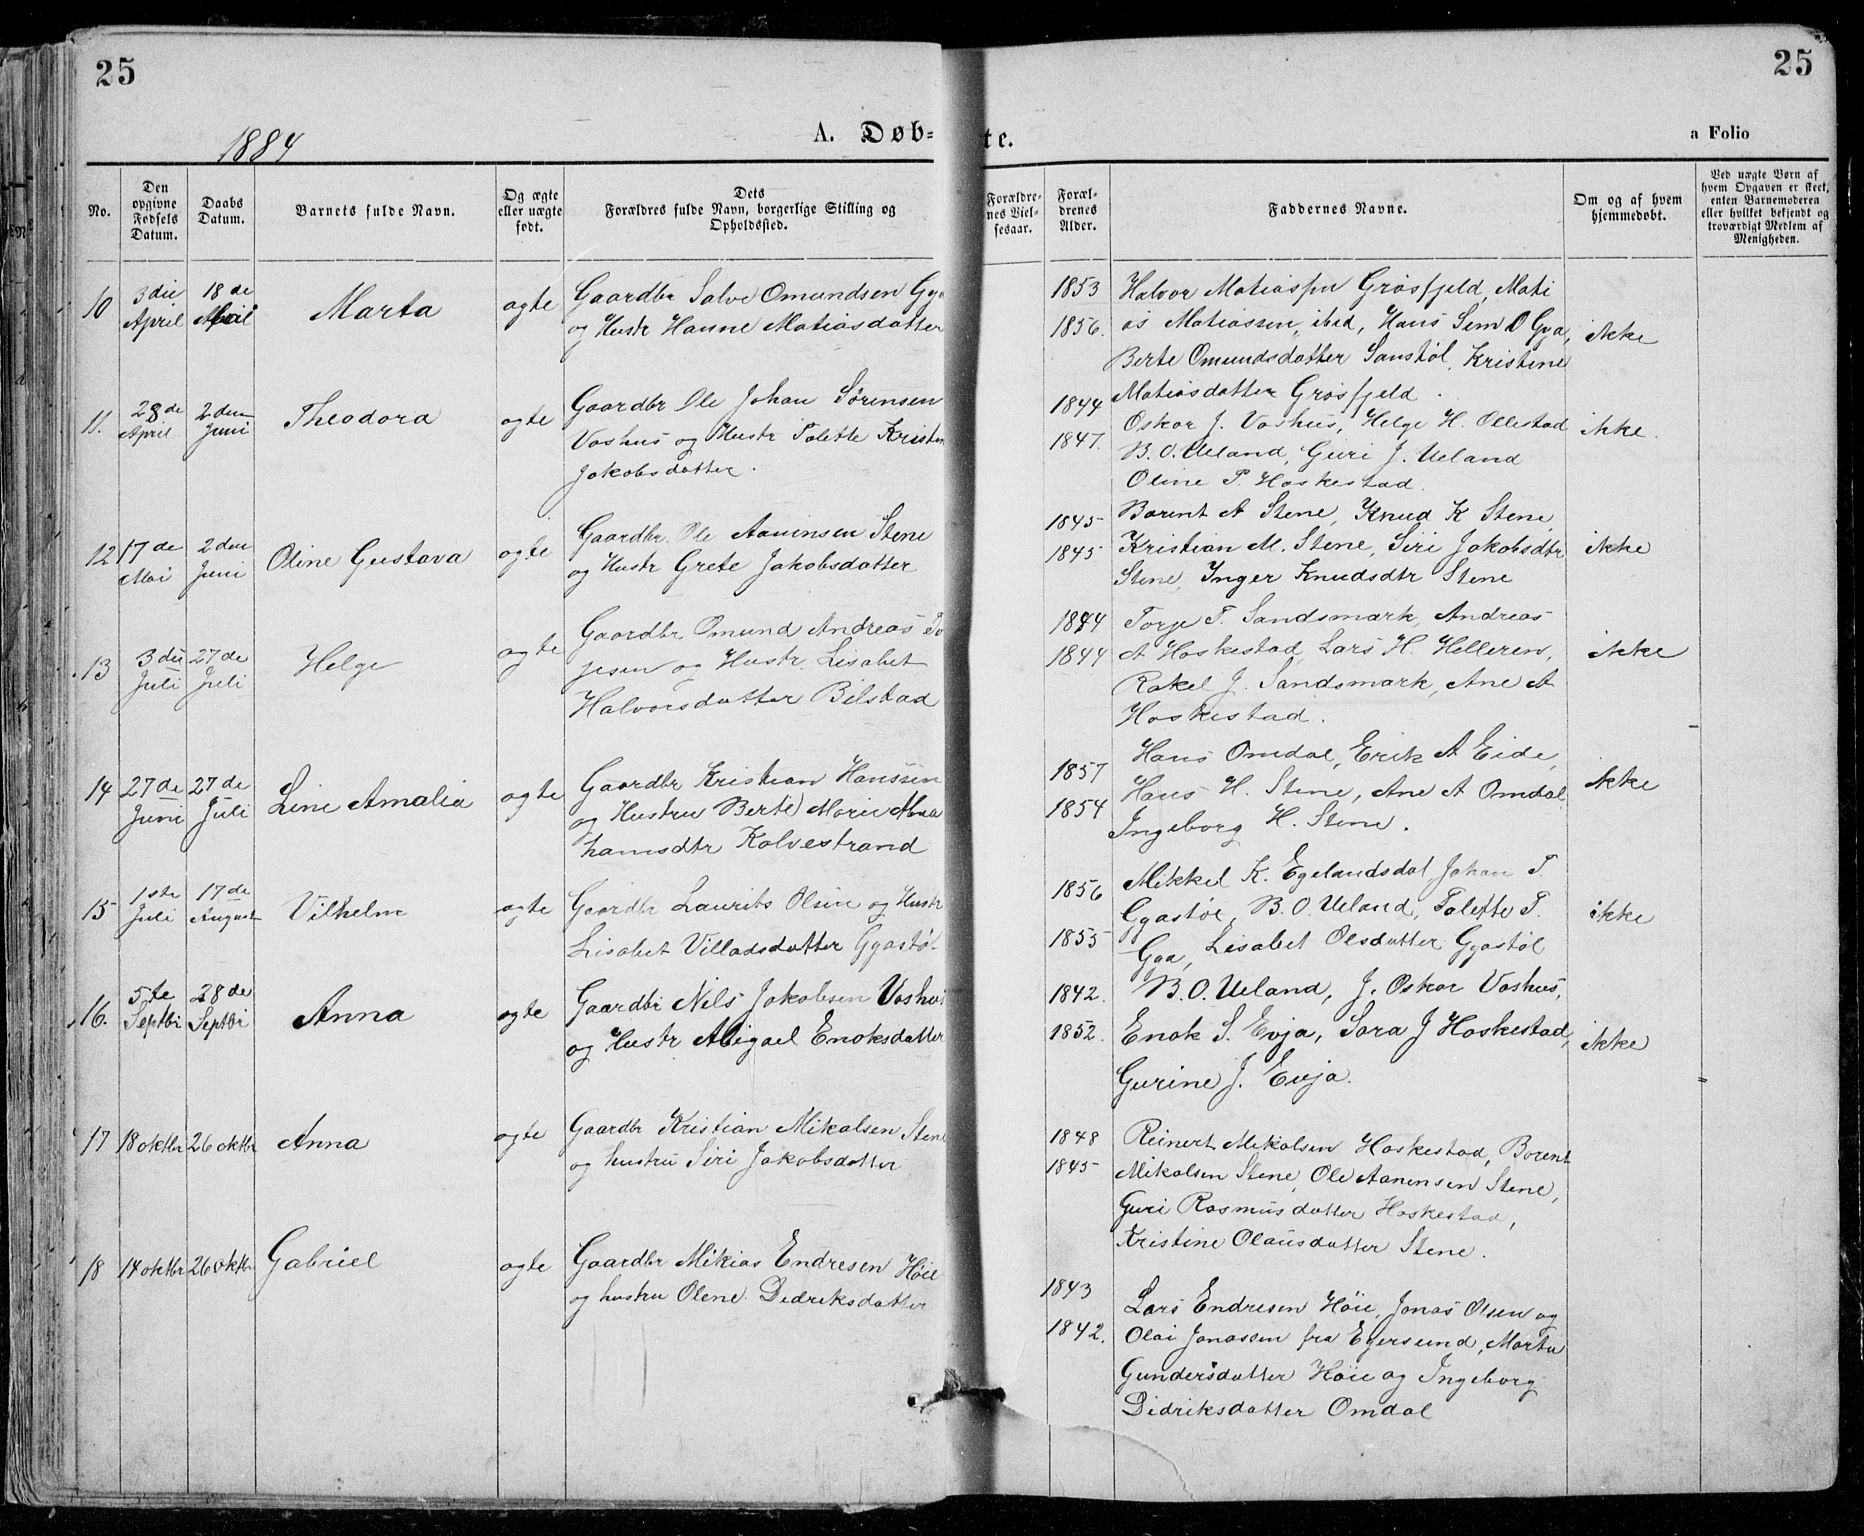 25
25
1884
A. Døb-
te.
a Folio
No.
Den opgivne Fødsels Datum.
Daabs Datum.
Barnets fulde Navn.
Og ægte eller uægte født.
Dets Forældres fulde Navn, borgerlige Stilling og Opholdssted.
Forældrenes Vielsesaar.
Forældrenes Alder.
Faddernes Navne.
Om og af hvem hjemmedøbt.
Ved uægte Børn af hvem Opgaven er skeet, enten Barnemoderen eller hvilket bekjendt og troværdigt Medlem af Menigheden.
10
3die April
18de Mai
Marta
ægte
Gaardbr Salve Omundsen Gya
og Hustr Hanne Matiasdatter
1853
1856.
Halvor Matiassen Grøsfjeld, Mati
as Matiassen, ibid, Hans Sem O Gya,
Berte Omundsdatter Sanstøl, Kristine
Matiasdatter Grøsfjeld.
ikke
11.
28de April
2den Juni
Theodora
ægte
Gaardbr Ole Johan Sørensen
Vashus og Hustr Talette Kristin
Jakobsdatter.
1844
1847.
Oskar J. Vashus, Helge H. Ollestad
B. O. Ueland, Guri J. Ueland
Oline P. Haskestad.
ikke.
12
17de Mai
2den Juni
Oline Gustava
ægte
Gaardbr. Ole Aanensen Stene
og Hustr Grete Jakobsdatter
1845
1845
Barent A Stene, Knud K Stene,
Kristian M. Stene, Siri Jakobsdtr
Stene, Inger Knudsdtr Stene
ikke
13
3die Juli
27de Juli
Helge
ægte
Gaardbr Omund Andreas To
jesen og Hustr. Lisabet
Halvorsdatter Bilstad
1844
1844
Torje T. Sandsmark, Andreas
A Haskestad, Lars H. Helleren,
Rakel J. Sandsmark, Ane A
Haskestad.
ikke
14
27de Juni
27de Juli
Line Amalia
ægte
Gaardbr Kristian Hanssen
og Hustru Berte Marie Abra
hamsdtr Kalvestrand
1857
1854
Hans Omdal, Erik A Eide,
Hans H. Stene, Ane A Omdal
Ingeborg H. Stene.
ikke
15
1ste Juli
17de August
Vilhelm
ægte
Gaardbr Laurits Olsen og Hustr
Lisabet Villadsdatter Gyastøl
1856
1855
Mikkel K. Egelandsdal, Johan T.
Gyastøl, B. O. Ueland, Talette T.
Gya, Lisabet Olsdatter Gyastøl
ikke
16.
5te Septbr
28de Septbr
Anna
ægte
Gaardbr Nils Jakobsen Vashus
og Hustr Abigael Enoksdatter
1842.
1852.
B. O. Ueland, J. Oskar Vashus,
Enok S. Evja, Sara J Haskestad,
Gurine J. Evja.
ikke
17
18 oktbr
26 oktbr
Anna
ægte
Gaardbr Kristian Mikalsen Stene
og hustru Siri Jakobsdatter
1848
1845
Reinert Mikalsen Haskestad, Barent
Mikalsen Stene, Ole Aanensen Stene,
Guri Rasmusdatter Haskestad,
Kristine Olausdatter Stene.
18
14 oktbr
26 oktbr
Gabriel
ægte
Gaardbr Mikias Endresen Høie
og hustru Olene Didriksdatter
1843
1842.
Lars Endresen Høie, Jonas Olsen og
Olai Jonassen fra Egersund, Marta
Gundersdatter Høie og Ingeborg
Didriksdatter Omdal